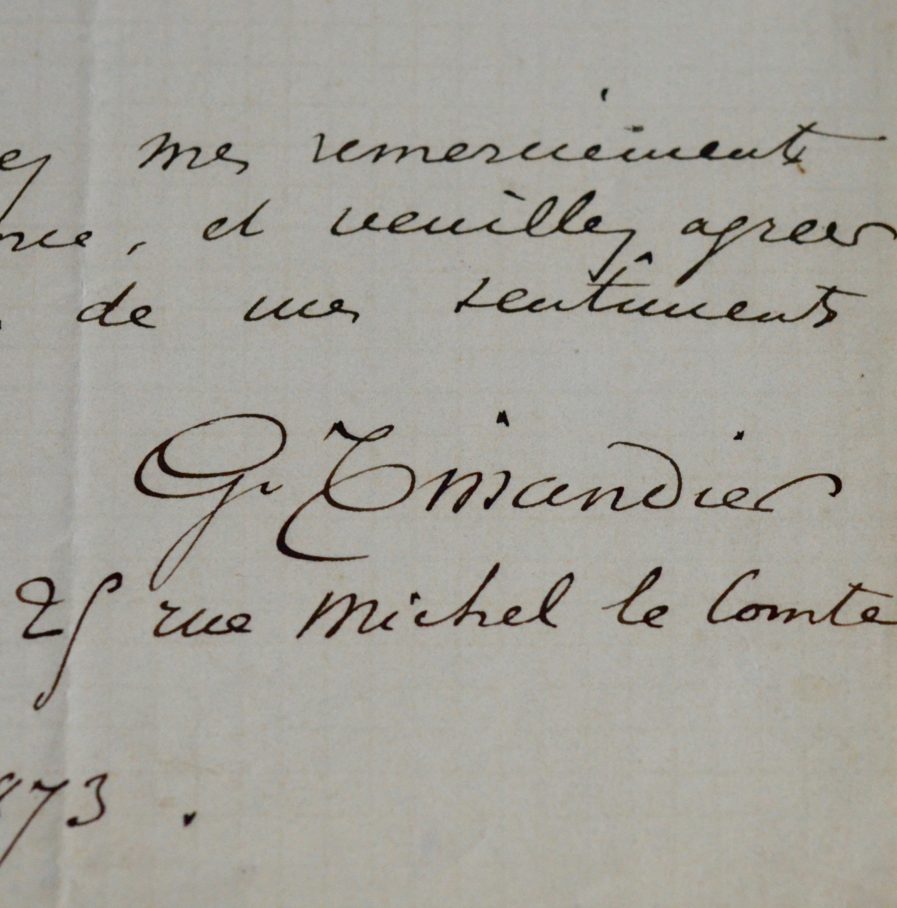 mes remerciements
, et veuillez agréer
de mes sentiments
G. Timandier
25 rue Michel le Comte
873.